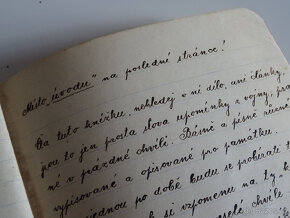 Místo „úvodu" na poslední stránce!
Na tuto knížku, nehledej v ní dílo, ani články,
jsou to jen prostá slova upomínky z vojny, pra
né v prázdné chvíli. Básně a písně různé
vypisované a opisované pro památku.
jednou po době budu se probírati t
si vzpomenu na ty „k